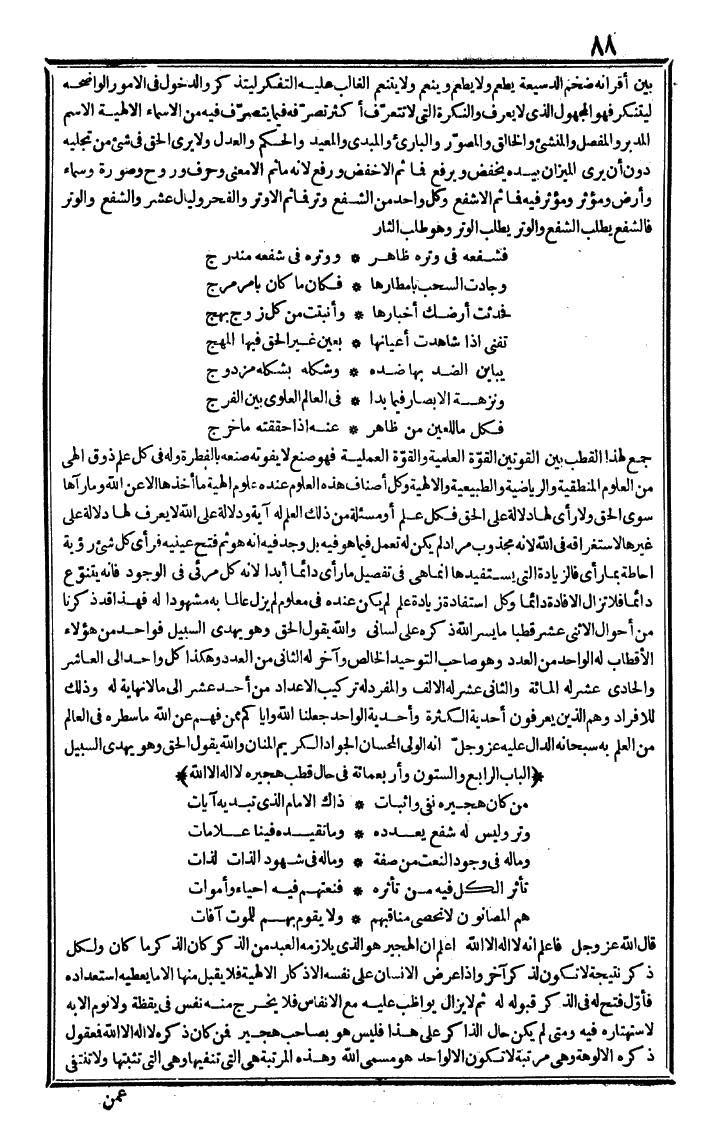 ٨٨
بين أقرانه ضخم الدسيعة يطعم ولا يطعم وينعم ولا يتنعم الغالب عليه التفكر ليتذكر والدخول فى الامور الواضحه
ليتنكر فهو المجهول الذى لا يعرف والنكرة التى لا تتعرف أكثر تصرفه فيما يتصرف فيه من الاسماء الالهية الاسم
المدبر والمفصل والمنشئ والخالق والمصور والبارئ والمبدى والمعيد والحكم والعدل ولا يرى الحق فى شئ من تجليه
دون أن يرى الميزان بيده يخفض ويرفع فما ثم الاخفض ورفع لانه ماثم الامعنى وحرف وروح وصورة وسماء
وأرض ومؤثر ومؤثر فيه فما ثم الاشفع وكل واحد من الشفع وتر فما ثم الاوتر والفجر وليال عشر والشفع والوتر
فالشفع يطلب الشفع والوتر يطلب الوتر وهو طلب الثار
فشفعه فى وتره ظاهر * ووتره فى شفعه مندرج
وجادت السحب بامطارها * فكان ما كان بامر مرج
فحدثت أرضك أخبارها * وأنبتت من كل زوج بهج
تفنى اذا شاهدت أعيانها * بعين غير الحق فيها المهج
يباين الضد بها ضده * وشكله بشكله مزدوج
ونزهة الابصار فيما بدا * فى العالم العلوى بين الفرج
فكل ما للعين من ظاهر * عنه اذا حققته ما خرج
جمع لهذا القطب بين القوتين القوّة العلمية والقوّة العملية فهو صنع لا يفوته صنعه بالفطرة وله فى كل علم ذوق الهى
من العلوم المنطقية والرياضية والطبيعية والالهية وكل أصناف هذه العلوم عنده علوم الهية ما أخذها الاعن الله وما رآها
سوى الحق ولا رأى لها دلالة على الحق فكل علم أو مسئلة من ذلك العلم له آية ودلالة على الله لا يعرف لها دلالة على
غيرها لاستغراقه فى الله لانه مجذوب مراد لم يكن له تعمل فيما هو فيه بل وجد فيه انه هو ثم فتح عينيه فرأى كل شئ رؤية
احاطة بما رأى فالزيادة التى يستفيدها انما هى فى تفصيل ما رأى دائما أبدا لانه كل مرئى فى الوجود فانه يتنوع
دائما فلا تزال الافادة دائما وكل استفادة زيادة علم لم يكن عنده فى معلوم لم يزل عالما به مشهودا له فهذا قد ذكرنا
من أحوال الاثنى عشر قطبا ما يسر الله ذكره على لسانى والله يقول الحق وهو يهدى السبيل فواحد من هؤلاء
الأقطاب له الواحد من العدد وهو صاحب التوحيد الخالص وآخر له الثانى من العدد وهكذا كل واحد الى العاشر
والحادى عشر له المائة والثانى عشر له الالف والمفرد له تركيب الاعداد من أحد عشر الى مالا نهاية له وذلك
للافراد وهم الذين يعرفون أحدية الكثرة وأحدية الواحد جعلنا الله واياكم ممن فهم عن الله ما سطره فى العالم
من العلم به سبحانه الدال عليه عز وجلّ انه الولى المحسان الجواد الكريم المنان والله يقول الحق وهو يهدى السبيل
﴿الباب الرابع والستون وأربعمائة فى حال قطب هجيره لا اله الا الله﴾
من كان هجيره نفى واثبات * ذاك الامام الذى تبديه آيات
وتر وليس له شفع يعدده * وما تقيده فينا علامات
وماله فى وجود النعت من صفة * وماله فى شهود الذات لذات
تأثر الكل فيه من تأثره * فنعتهم فيه احياء وأموات
هم المصانون لا تحصى مناقبهم * ولا يقوم بهم للموت آفات
قال الله عز وجل فاعلم انه لا اله الا الله اعلم ان الهجير هو الذى يلازمه العبد من الذكر كان الذكر ما كان ولكل
ذكر نتيجة لا تكون لذكر آخر واذا عرض الانسان على نفسه الاذكار الالهية فلا يقبل منها الا ما يعطيه استعداده
فأوّل فتح له فى الذكر قبوله له ثم لا يزال يواظب عليه مع الانفاس فلا يخرج منه نفس فى يقظة ولا نوم الا به
لاستهتاره فيه ومتى لم يكن حال الذاكر على هذا فليس هو بصاحب هجير فمن كان ذكره لا اله الا الله فعقول
ذكره الالوهة وهى مرتبة لا تكون الا لواحد هو مسمى الله وهذه المرتبة هى التى تنفيها وهى التى تثبتها ولا تنتفى
عمن